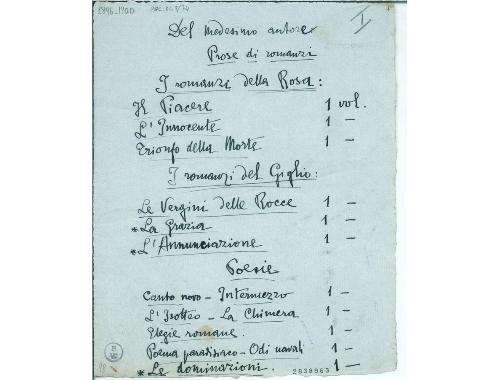 1896-1900 ARC.21.9/24
I
Del medesimo autore
Prose di romanzi
I romanzi della Rosa:
Il Piacere 1 vol.
L'Innocente 1 —
Trionfo della Morte 1 —
I romanzi del Giglio:
Le Vergini delle Rocce 1 —
* La Grazia 1 —
* L'Annunciazione 1 —
Poesie
Canto novo — Intermezzo 1 —
L'Isotteo — La Chimera 1 —
Elegie romane. 1 —
Poema paradisiaco — Odi navali 1 —
* Le dominazioni. 1 —
2838963